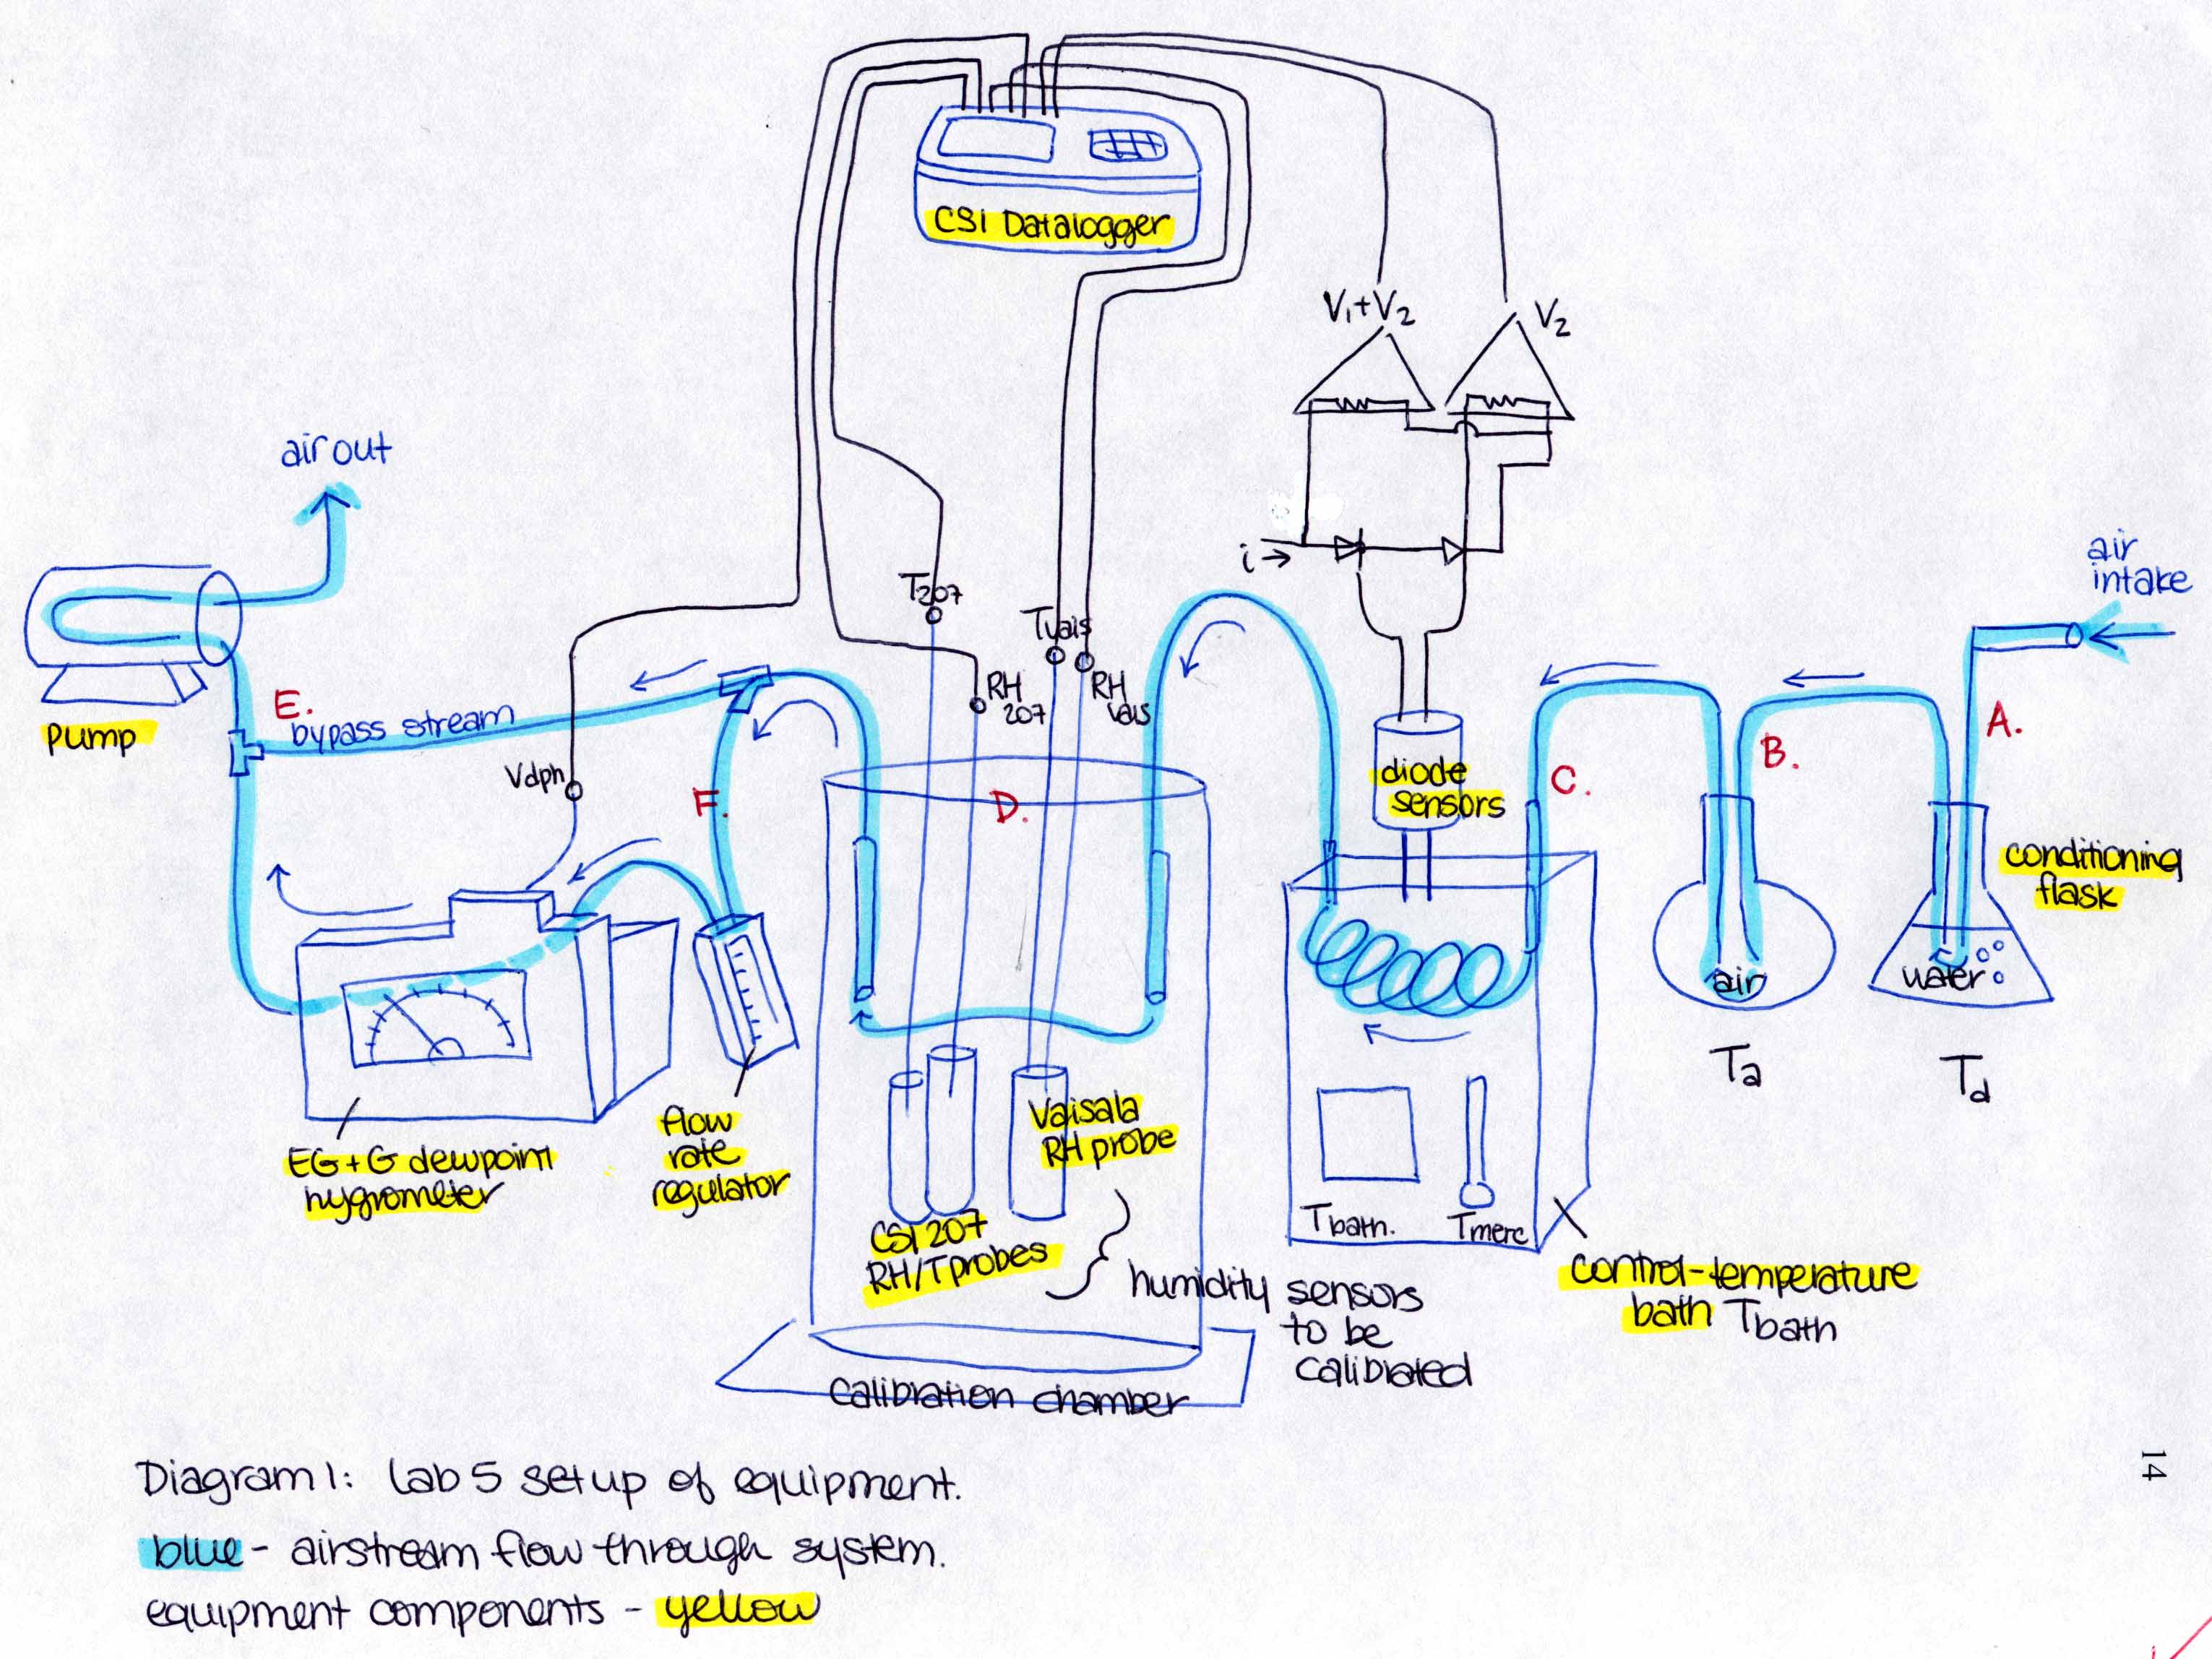 CSI Datalogger
V₁+V₂
V₂
air out
i →
air
intake
T207
Tvais
RH
207
RH
Vais
A.
B.
C.
D.
E.
F.
bypass stream
pump
Vdph
diode
sensors
conditioning
flask
air
water
Ta
Td
EG+G dewpoint
hygrometer
flow
rate
regulator
Vaisala
RH probe
CSI 207
RH/T probes
Tbath.
Tmerc
control-temperature
bath Tbath
humidity sensors
to be
calibrated
calibration chamber
14
Diagram 1: Lab 5 setup of equipment.
blue - airstream flow through system.
equipment components - yellow